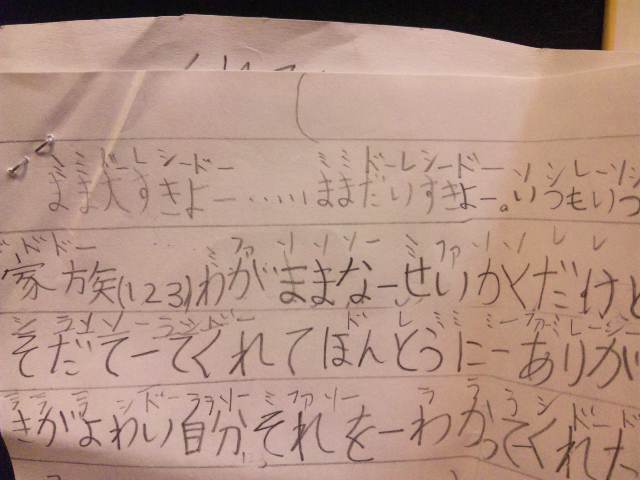 ミミドーレシードー ミミドーレシードー ソシレーソシ
まま大すきよー・・・・・ままだいすきよー。いつもいつ
ドドー ミファソソソーミファソソレレ
家族(123)わがままなーせいかくだけど
シラ ソーラシドー ドレミミミーファミレーシー
そだてーてくれてほんとうにーありが
ララシドーラソーミファソーラララシドード
きがよわい自分、それを一わかってくれた